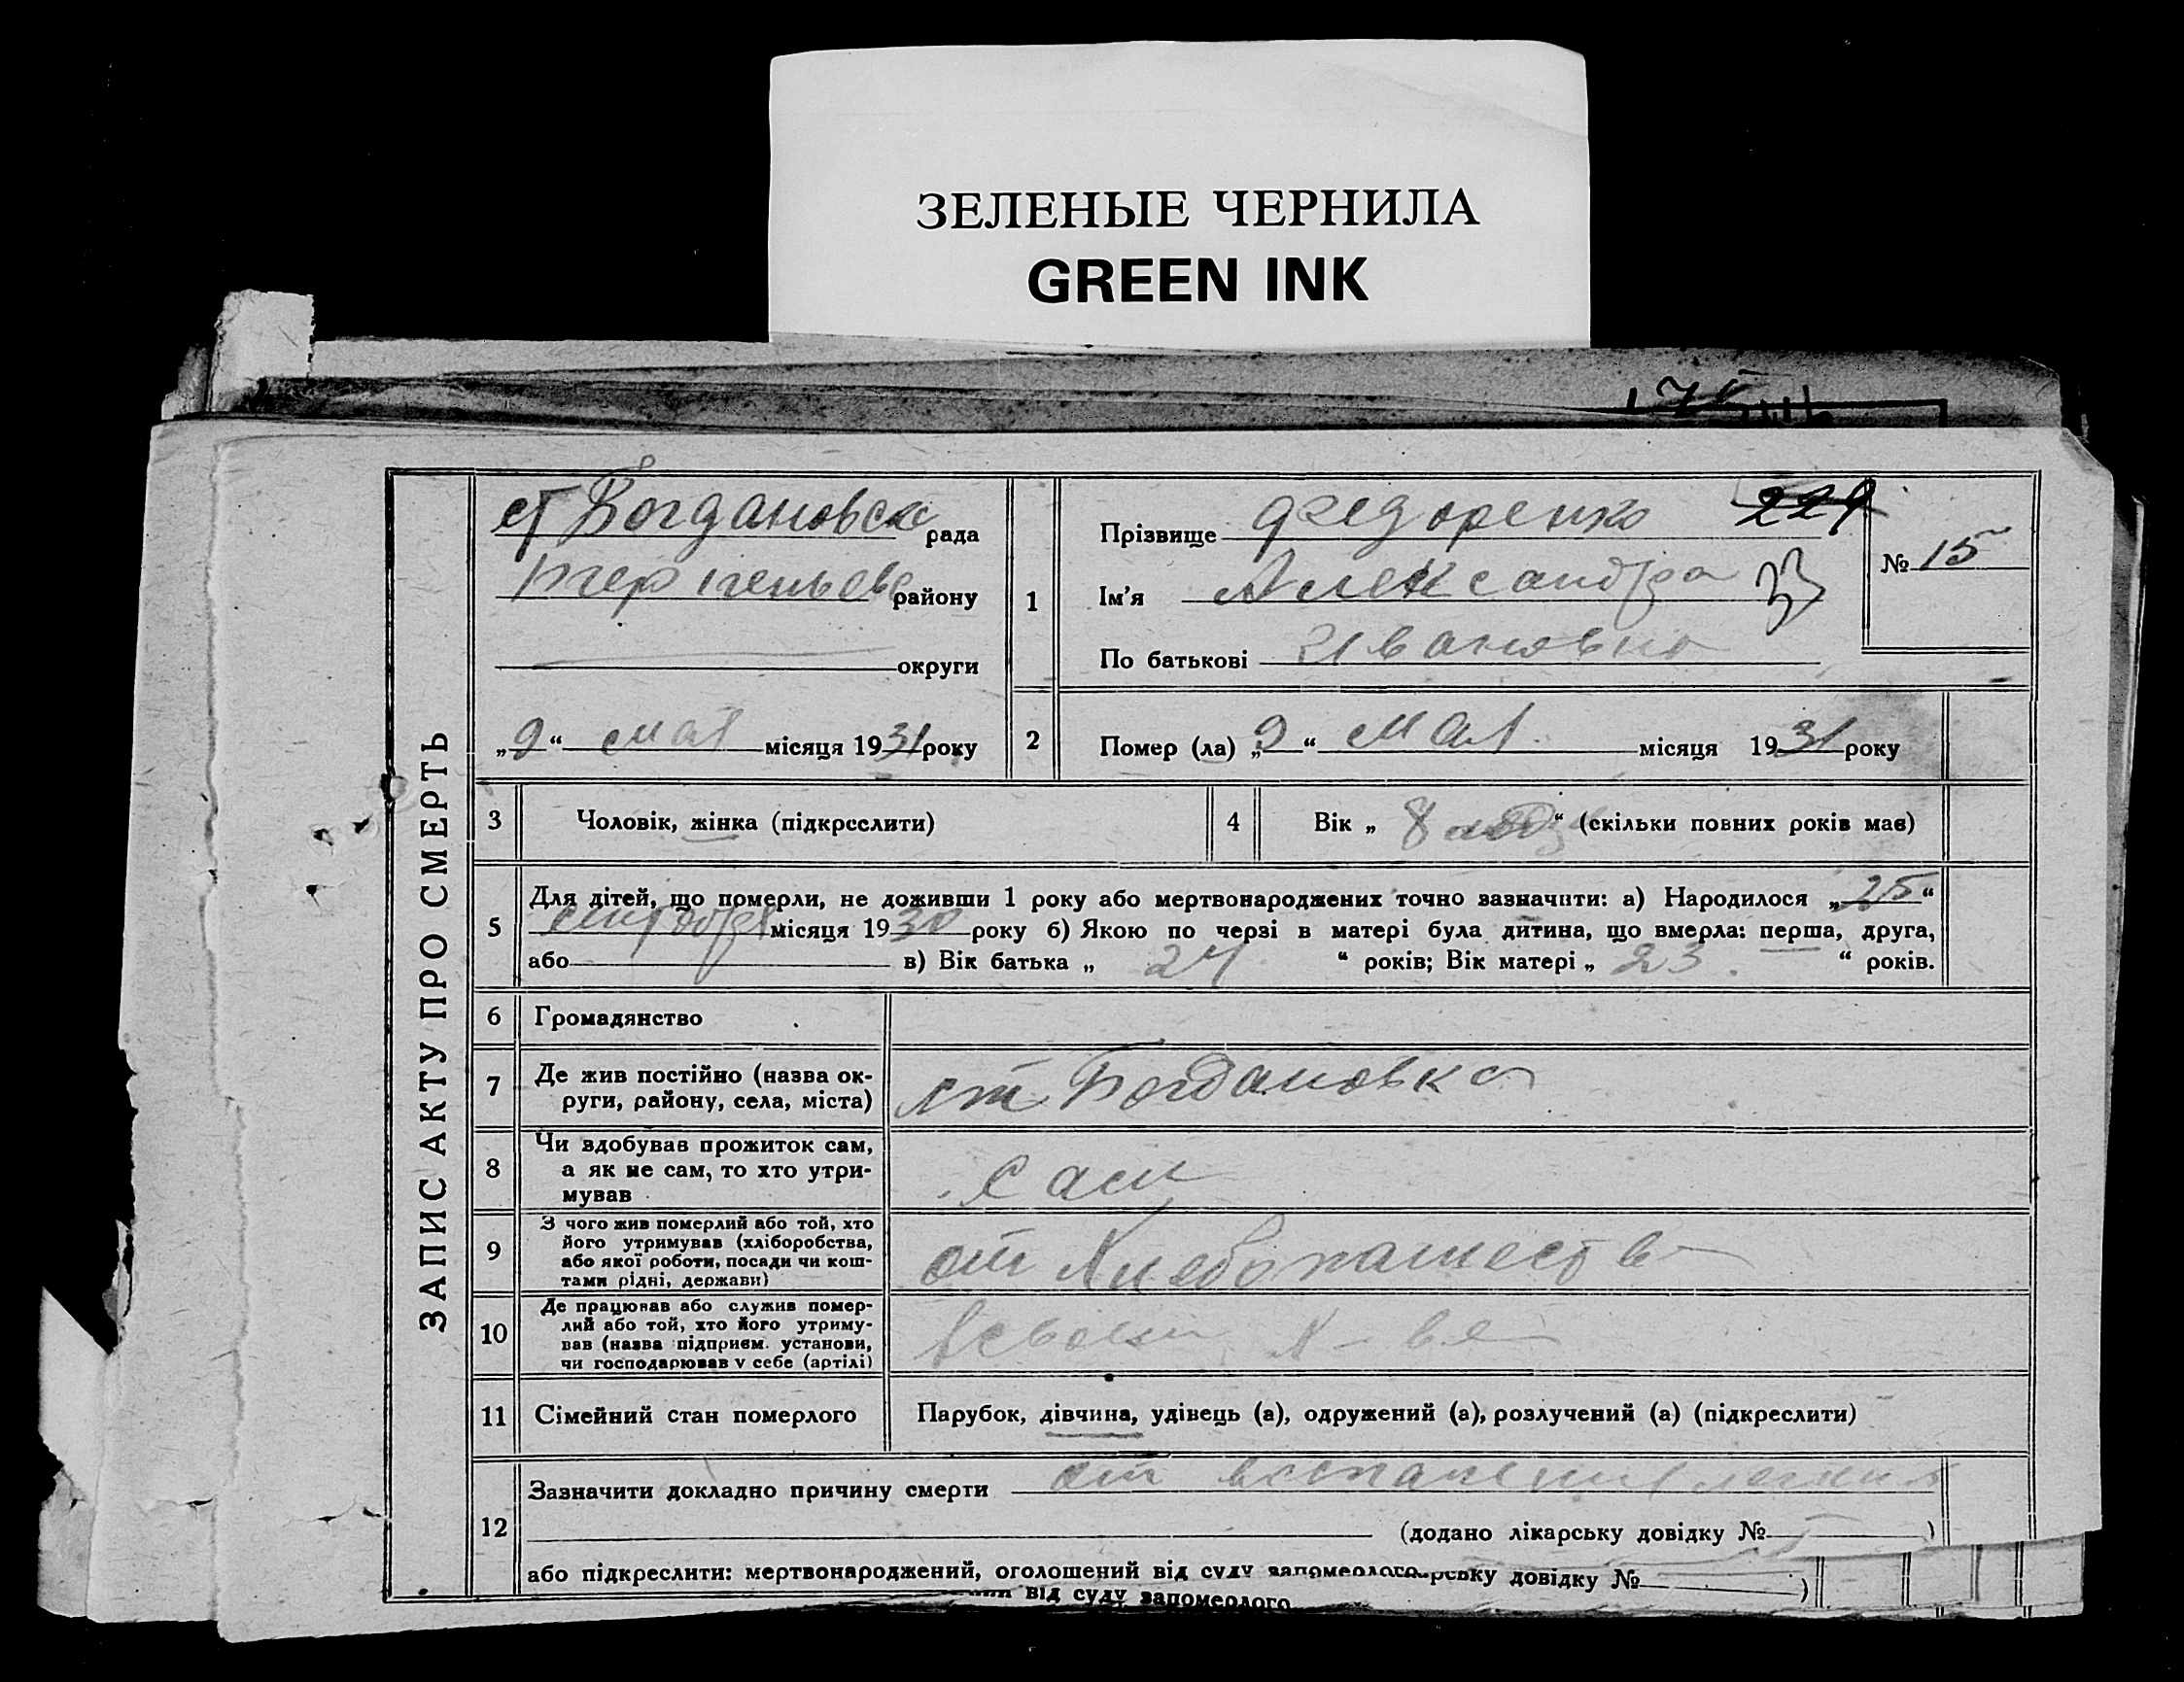 ЗЕЛЕНЫЕ ЧЕРНИЛА
GREEN INK
ЗАПИС АКТУ ПРО СМЕРТЬ
ст Богдановск рада
району
округи
„9“ мая місяця 1931 року
1
Прізвище Федоренко 229
Ім'я Александра 33
По батькові Ивановна
№ 15
2 Помер (ла) „9“ мая місяця 1931 року
3 Чоловік, жінка (підкреслити)
4 Вік „8 “ (скільки повних років має)
5 Для дітей, що померли, не доживши 1 року або мертвонароджених точно зазначити: а) Народилося „25“
сентября місяця 1930 року б) Якою по черзі в матері була дитина, що вмерла: перша, друга,
або в) Вік батька „ 24 “ років; Вік матері „ 23 “ років.
6 Громадянство
7 Де жив постійно (назва ок-
руги, району, села, міста)
ст Богдановка
8 Чи здобував прожиток сам,
а як не сам, то хто утри-
мував
сам
9 З чого жив померлий або той, хто
його утримував (хліборобства,
або якої роботи, посади чи кош-
тами рідні, держави)
от Хлебопашеств
10 Де працював або служив помер-
лий або той, хто його утриму-
вав (назва підприєм. установи,
чи господарював у себе (артілі)
в своем х-ве
11 Сімейний стан померлого
Парубок, дівчина, удівець (а), одружений (а), розлучений (а) (підкреслити)
12 Зазначити докладно причину смерти от воспаления легких
(додано лікарську довідку № )
або підкреслити: мертвонароджений, оголошений від суду запомерлого
рську довідку № )
від суду запомерлого